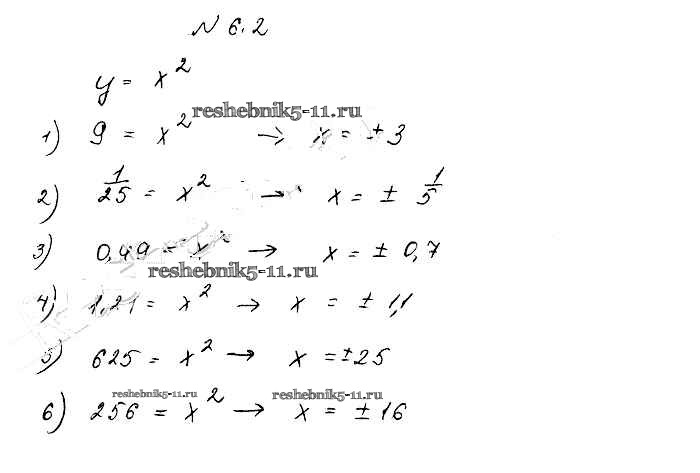 № 6.2
y = x²
reshebnik5-11.ru
1) 9 = x² → x = ± 3
2) 1/25 = x² → x = ± 1/5
3) 0,49 = x² → x = ± 0,7
reshebnik5-11.ru
4) 1,21 = x² → x = ± 1,1
5) 625 = x² → x = ± 25
reshebnik5-11.ru reshebnik5-11.ru
6) 256 = x² → x = ± 16